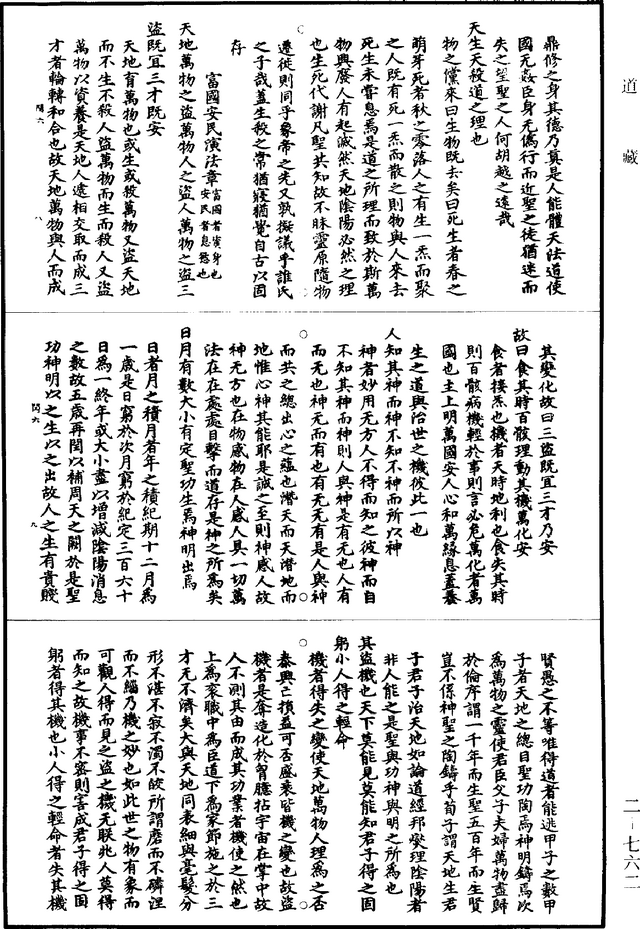 道藏
鼎修之身其德乃真是人能體天法道使
國无姦臣身无僞行而近聖之徒猶迷而
失之望聖之人何胡越之遠哉
天生天殺道之理也
物之儻來曰生物既去矣曰死生者春之
萌芽死者秋之零落人之有生一炁而聚
之人既有死一炁而散之則物與人來去
死生未嘗息焉是道之所理而致於斯萬
物興廢人有起滅然天地陰陽必然之理
也生死代謝凡聖共知故不昧靈原隨物
遷徙則同乎象帝之先又孰擬議乎誰氏
之子哉蓋生殺之常猶寢猶覺自古以固
存
富國安民演法章富國者實身也安民者息慾也
天地萬物之盜萬物人之盜人萬物之盜三
盜既宜三才既安
天地育萬物也或生或殺萬物又盜天地
而不生不殺人盜萬物而生而殺人又盜
萬物以資養是天地人遞相交取而成三
才者輪轉和合也故天地萬物與人而成
閏六 八
其變化故曰三盜既宜三才乃安
故曰食其時百骸理動其機萬化安
食者撲炁也機者天時地利也食失其時
則百骸病機輕於事則言必危萬化者萬
國也主上明萬國安人心和萬緣息蓋養
生之道與治世之機彼此一也
人知其神而神不知不神而所以神
神者妙用无方人不得而知之彼神而自
不知其神而神則人與神是有无也人有
而无也神无而有也有无无有是人與神
而共之總出心之蘊也潛天而天潛地而
地惟心神其能耶是誠之至則神感人故
神无方也在物感物在人感人具一切萬
法在在處處目擊而道存是神之所爲矣
日月有數大小有定聖功生焉神明出焉
日者月之積月者年之積紀期十二月爲
一歲是日窮於次月窮於紀定三百六十
日爲一終年或大小盡以增減陰陽消息
之數故五歲再閏以補周天之闕於是聖
功神明以之生以之出故人之生有貴賤
閏六 九
賢愚之不等唯得道者能逃甲子之數甲
子者天地之總目聖功陶焉神明鑄焉次
爲萬物之靈使君臣父子夫婦萬物盡歸
於倫序謂一千年而生聖五百年而生賢
豈不係神聖之陶鑄乎荀子謂天地生君
子君子治天地如論道經邦燮理陰陽者
非人能之是聖與功神與明之所爲也
其盜機也天下莫能見莫能知君子得之固
躬小人得之輕命
機者得失之變使天地萬物人理爲之否
泰興亡損益可否盛衰皆機之變也故盜
機者是奪造化於胷臆拈宇宙在掌中故
人不測其由而成其功業者機使之然也
上爲衮職中爲臣道下爲家節施之於三
才无不濟矣大與天地同表細與毫髮分
形不湛不寂不濁不皎所謂磨而不磷涅
而不緇乃機之妙也如此世之物有象而
可觀人得而見之盜之機无朕兆人莫得
而知之故機事不密則害成君子得之固
躬者得其機也小人得之輕命者失其機
二-七六二